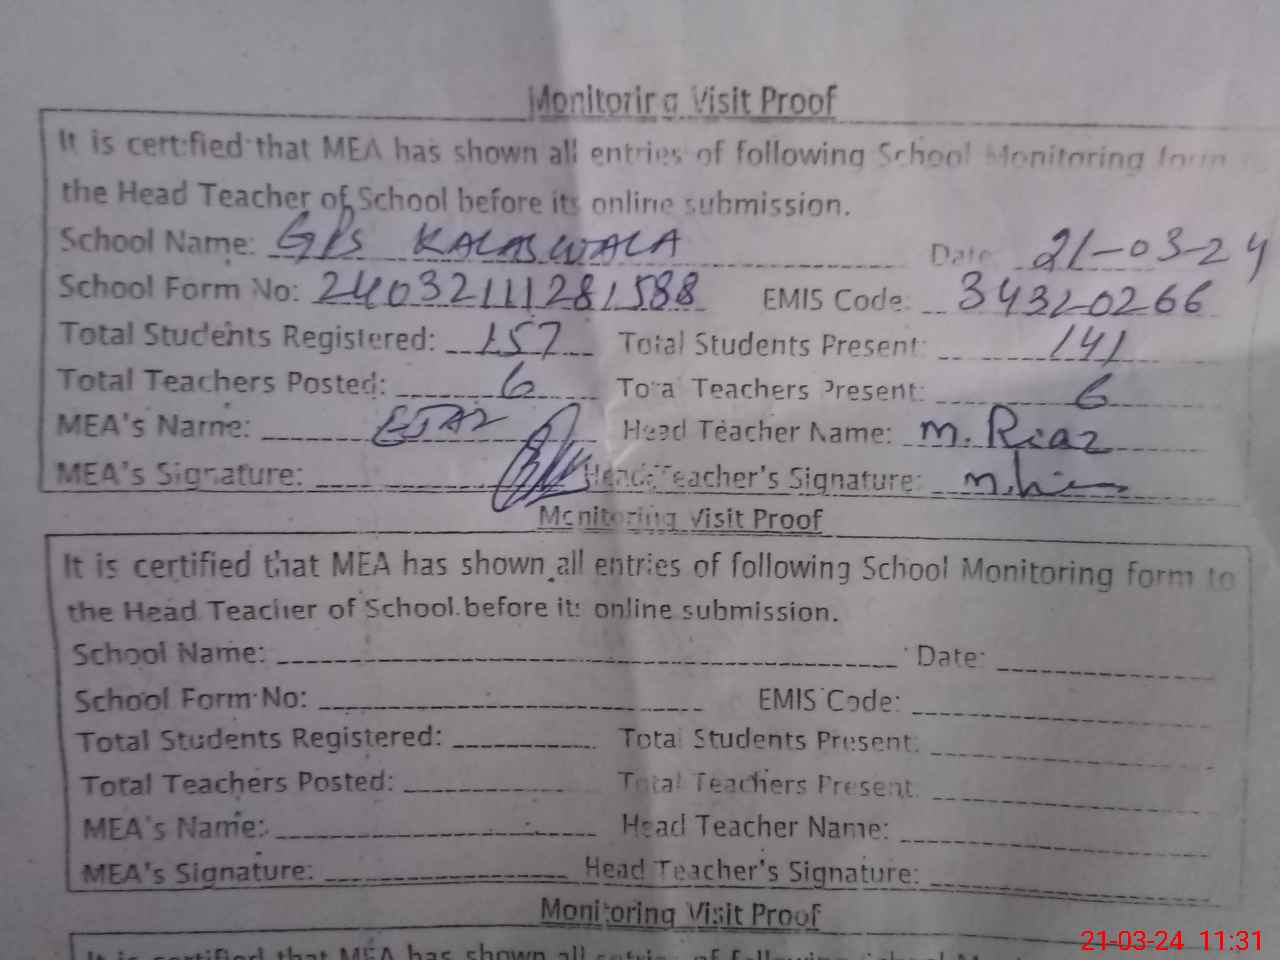 Monitoring Visit Proof
It is certified that MEA has shown all entries of following School Monitoring form
the Head Teacher of School before its online submission.
School Name: GPS KALASWALA Date 21-03-24
School Form No: 240321111281588 EMIS Code: 34320266
Total Students Registered: 157 Total Students Present: 141
Total Teachers Posted: 6 Total Teachers Present: 6
MEA's Name: EJAZ Head Teacher Name: M. Riaz
MEA's Signature: Head Teacher's Signature:
Monitoring Visit Proof
It is certified that MEA has shown all entries of following School Monitoring form to
the Head Teacher of School before its online submission.
School Name: Date:
School Form No: EMIS Code:
Total Students Registered: Total Students Present:
Total Teachers Posted: Total Teachers Present:
MEA's Name: Head Teacher Name:
MEA's Signature: Head Teacher's Signature:
Monitoring Visit Proof
It is certified that MEA has shown all entries of following School
21-03-24 11:31